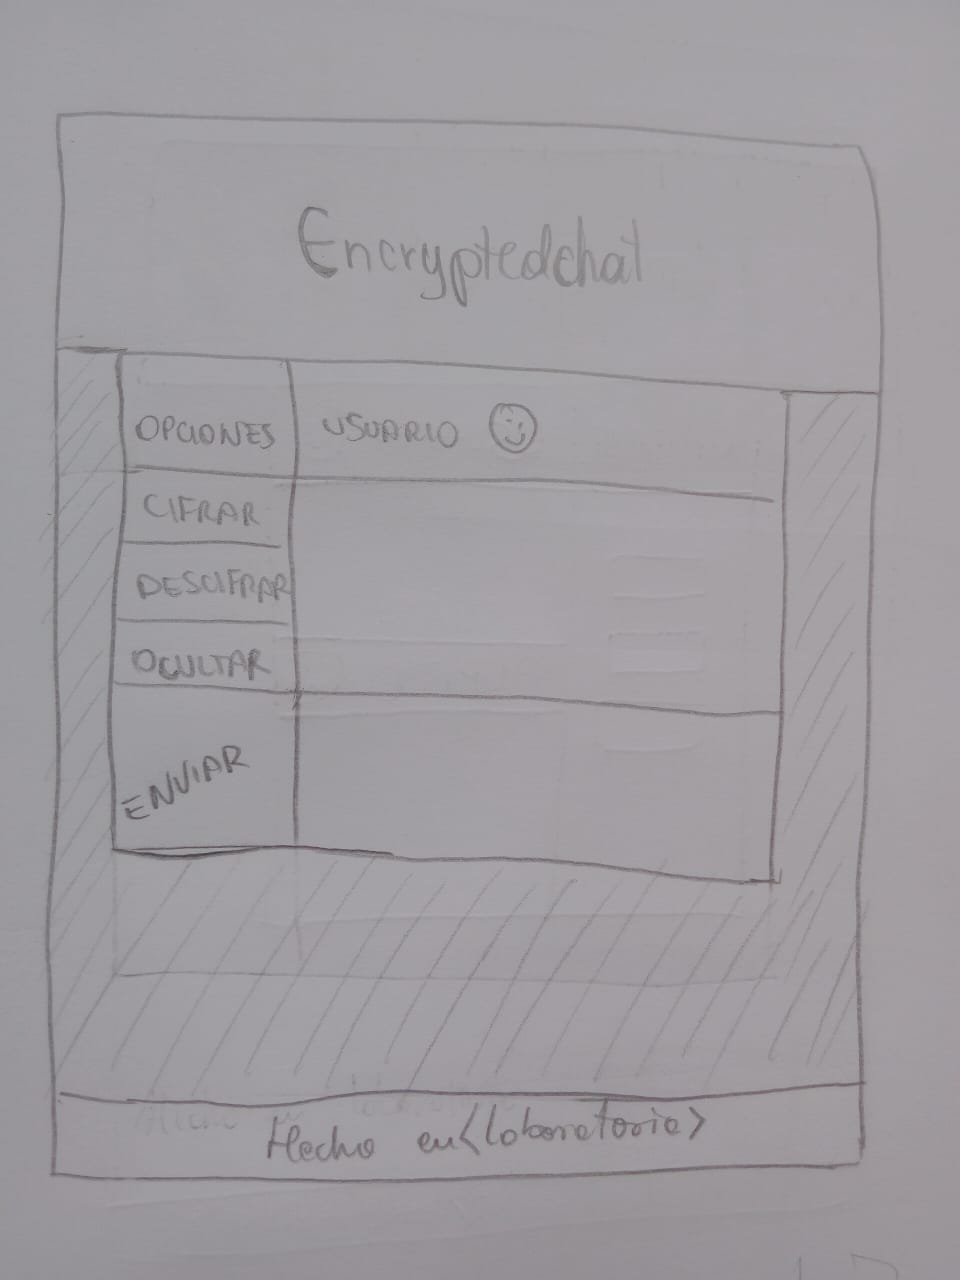 Encryptedchat
OPCIONES
USUARIO
CIFRAR
DESCIFRAR
OCULTAR
ENVIAR
Hecho en <laboratorio>